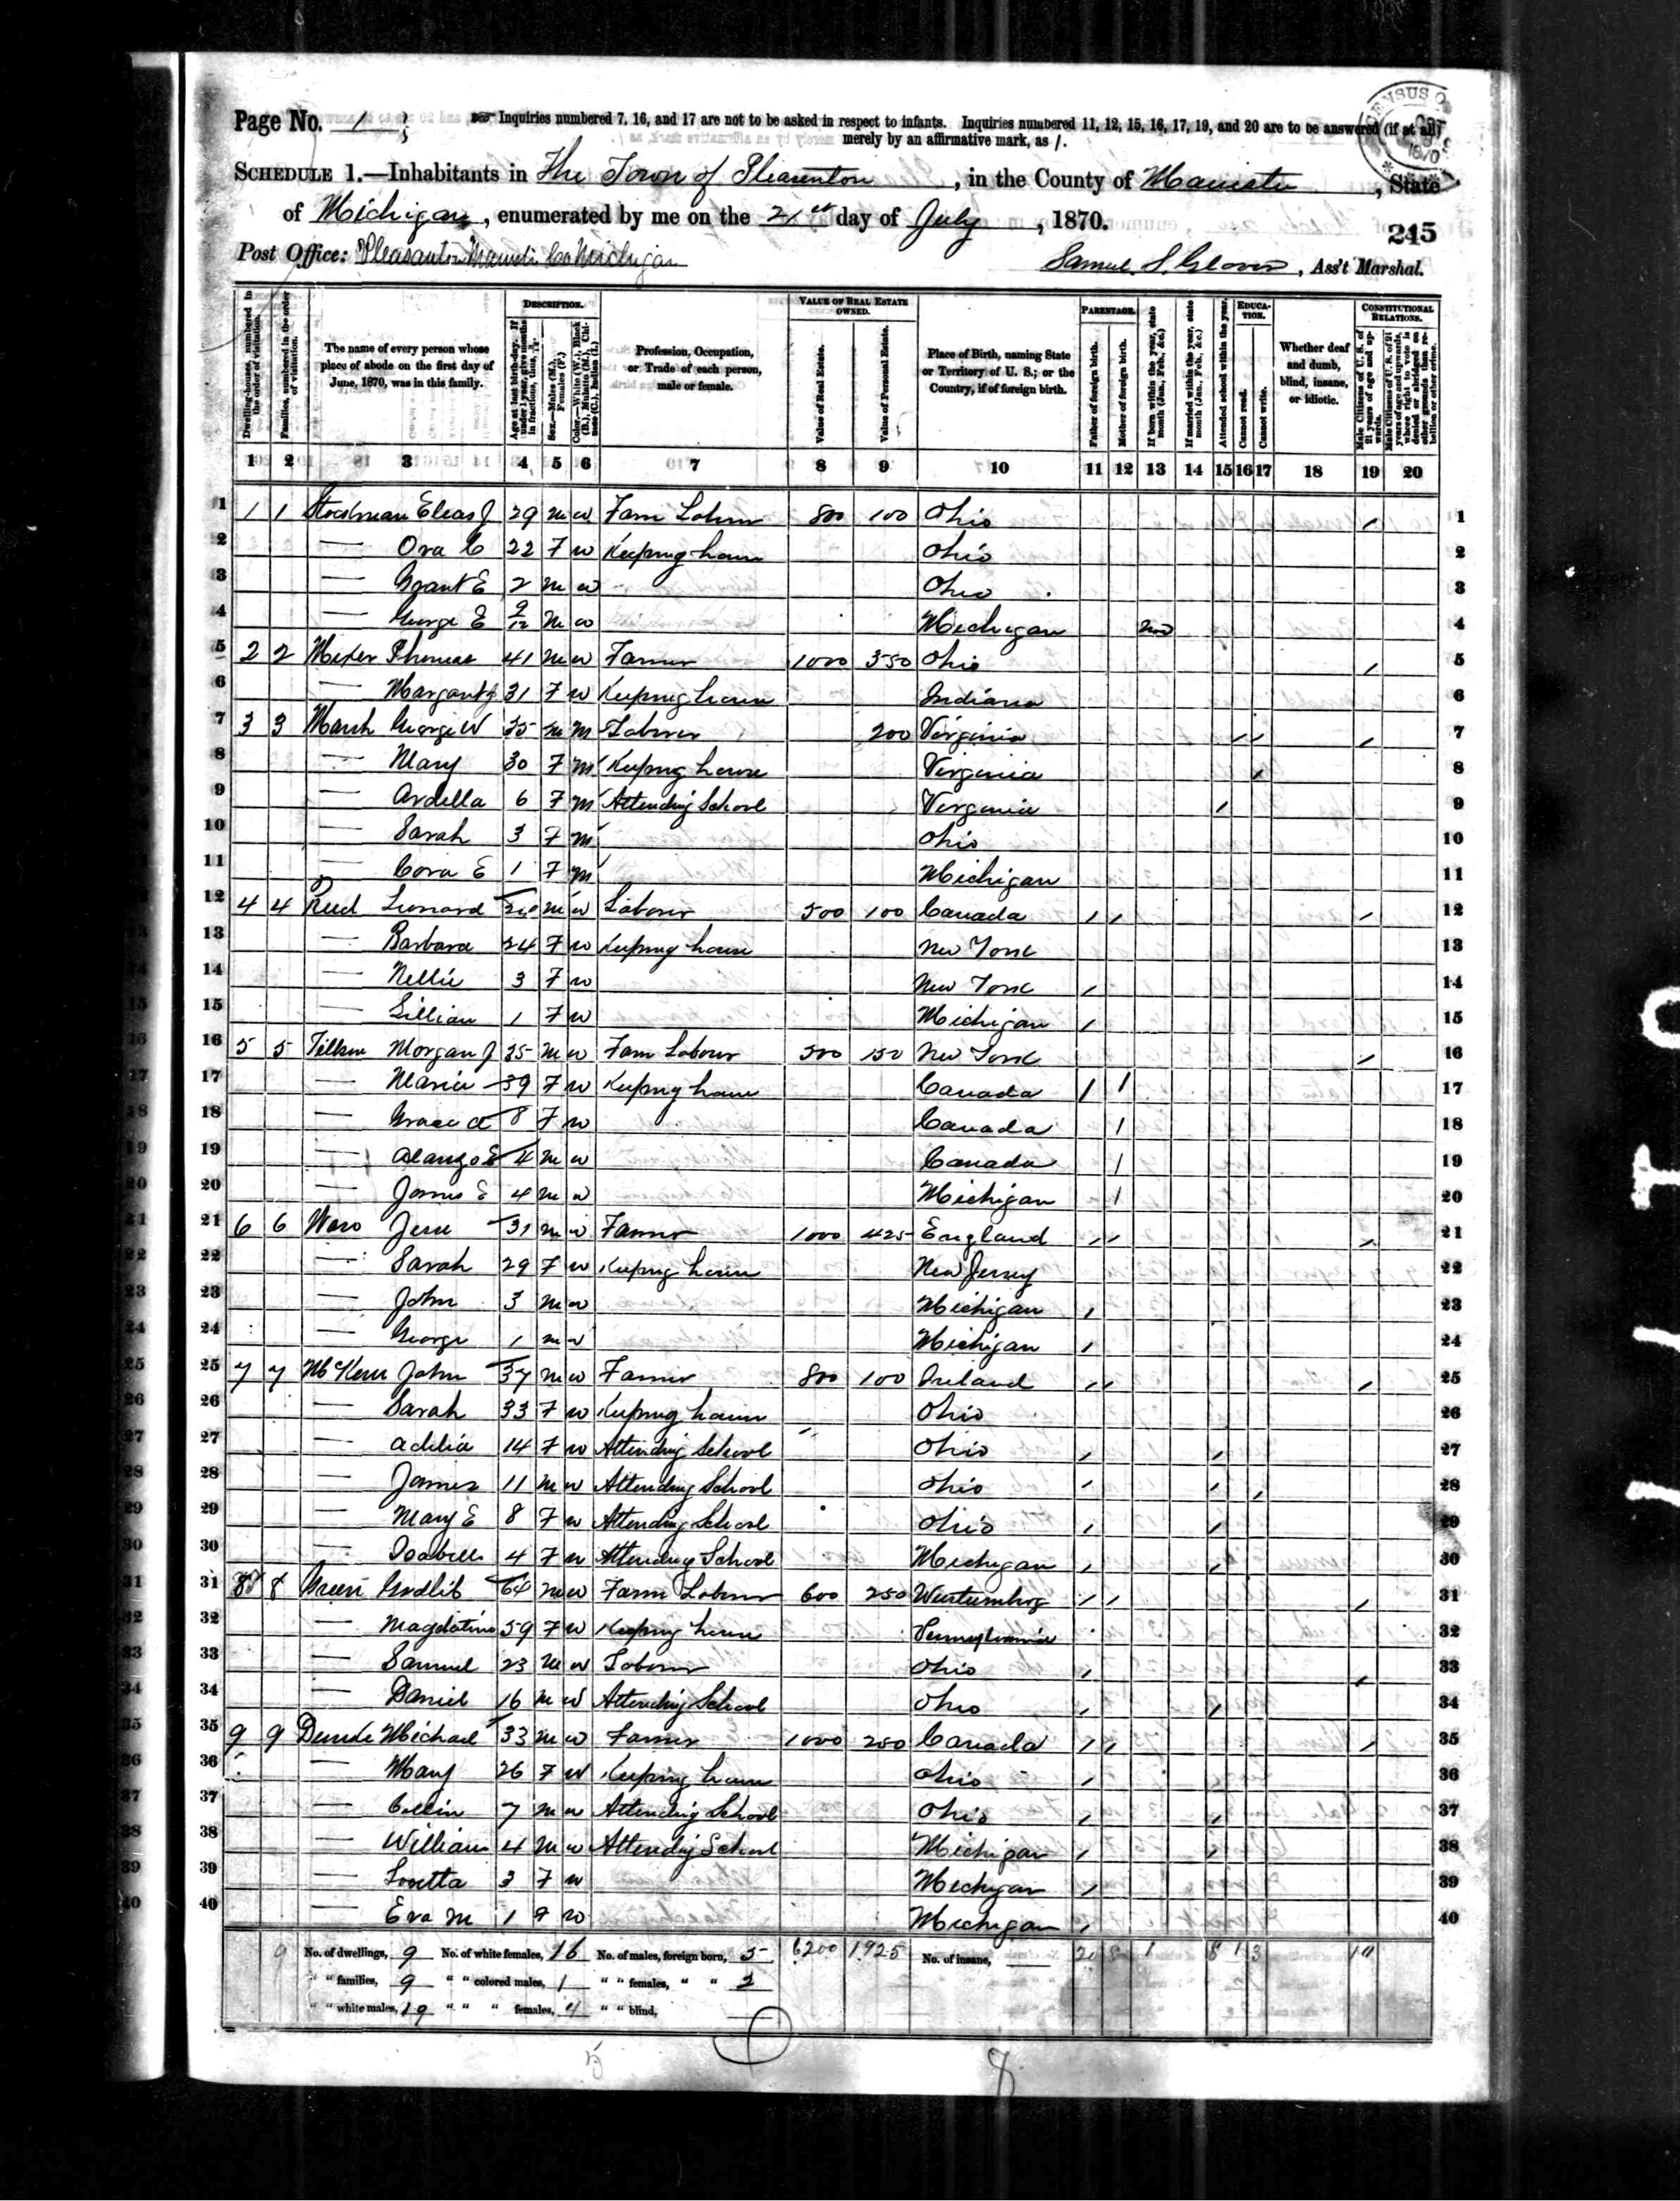 Page No. 1
Inquiries numbered 7, 16, and 17 are not to be asked in respect to infants. Inquiries numbered 11, 12, 15, 16, 17, 19, and 20 are to be answered (if at all)
merely by an affirmative mark, as /.
SCHEDULE 1.—Inhabitants in The Town of Pleasenton, in the County of Manistee, State
of Michigan, enumerated by me on the 21st day of July, 1870.
245
Post Office: Pleasanton Manistee Co Michigan
Samuel S. Glover, Ass't Marshal.
Dwelling-houses, numbered in the order of visitation.
Families, numbered in the order of visitation.
The name of every person whose place of abode on the first day of June, 1870, was in this family.
DESCRIPTION.
Age at last birth-day. If under 1 year, give months in fractions, thus, 3/12.
Sex.—Males (M.), Females (F.)
Color.—White (W.), Black (B.), Mulatto (M.), Chinese (C.), Indian (I.)
Profession, Occupation, or Trade of each person, male or female.
VALUE OF REAL ESTATE OWNED.
Value of Real Estate.
Value of Personal Estate.
Place of Birth, naming State or Territory of U. S.; or the Country, if of foreign birth.
PARENTAGE.
Father of foreign birth.
Mother of foreign birth.
If born within the year, state month (Jan., Feb., &c.)
If married within the year, state month (Jan., Feb., &c.)
Attended school within the year.
EDUCATION.
Cannot read.
Cannot write.
Whether deaf and dumb, blind, insane, or idiotic.
CONSTITUTIONAL RELATIONS.
Male Citizens of U. S. of 21 years of age and upwards.
Male Citizens of U. S. of 21 years of age and upwards, where right to vote is denied or abridged on other grounds than rebellion or other crime.
1 2 3 4 5 6 7 8 9 10 11 12 13 14 15 16 17 18 19 20
1 1 1 Elias J 29 m w Farm Labor 800 100 Ohio / 1
2 — Ora C 22 F w Keeping house Ohio 2
3 — Grant E 2 m w Ohio 3
4 — George E 9/12 m w Michigan 4
5 2 2 Thomas 41 m w Farmer 1000 350 Ohio / 5
6 — Margaret 31 F w Keeping house Indiana 6
7 3 3 Marsh George W 35 m m Laborer 200 Virginia / / / 7
8 — Mary 30 F m Keeping house Virginia / 8
9 — Ardella 6 F m Attending School Virginia / 9
10 — Sarah 3 F m Ohio 10
11 — Cora E 1 F m Michigan 11
12 4 4 Reed Leonard m w Laborer 500 100 Canada / / / 12
13 — Barbara 24 F w Keeping house New York 13
14 — Nellie 3 F w New York / 14
15 — Lillian 1 F w Michigan / 15
16 5 5 Morgan J 35 m w Farm Laborer 500 150 New York / 16
17 — Maria 39 F w Keeping house Canada / / 17
18 — Grace A 8 F w Canada / 18
19 — Alanzo E m w Canada / 19
20 — James E 4 m w Michigan / 20
21 6 6 Jesse 31 m w Farmer 1000 425 England / / / 21
22 — Sarah 29 F w Keeping house New Jersey 22
23 — John 3 m w Michigan / 23
24 — George 1 m w Michigan / 24
25 7 7 John 37 m w Farmer 800 100 Ireland / / / 25
26 — Sarah 33 F w Keeping house Ohio 26
27 — Adelia 14 F w Attending School Ohio / / 27
28 — James 11 m w Attending School Ohio / / / 28
29 — Mary E 8 F w Attending School Ohio / / 29
30 — Isabell 4 F w Attending School Michigan / / 30
31 8 8 Godlib 64 m w Farm Laborer 600 250 Wurtemburg / / / 31
32 — 59 F w Keeping house Pennsylvania 32
33 — Samuel 23 m w Laborer Ohio / / 33
34 — Daniel 16 m w Attending School Ohio / / 34
35 9 9 Michael 33 m w Farmer 1000 250 Canada / / / 35
36 — Mary 26 F w Keeping house Ohio / 36
37 — Collin 7 m w Attending School Ohio / / 37
38 — William 4 m w Attending School Michigan / / 38
39 — Loretta 3 F w Michigan / 39
40 — Eva M 1 F w Michigan / 40
No. of dwellings, 9 No. of white females, 16 No. of males, foreign born, 5 6200 1925 No. of insane, 20 8 1 8 1 3
" " families, 9 " " colored males, 1 " " females, " " 2
" " white males, 19 " " " females, 4 " " blind,